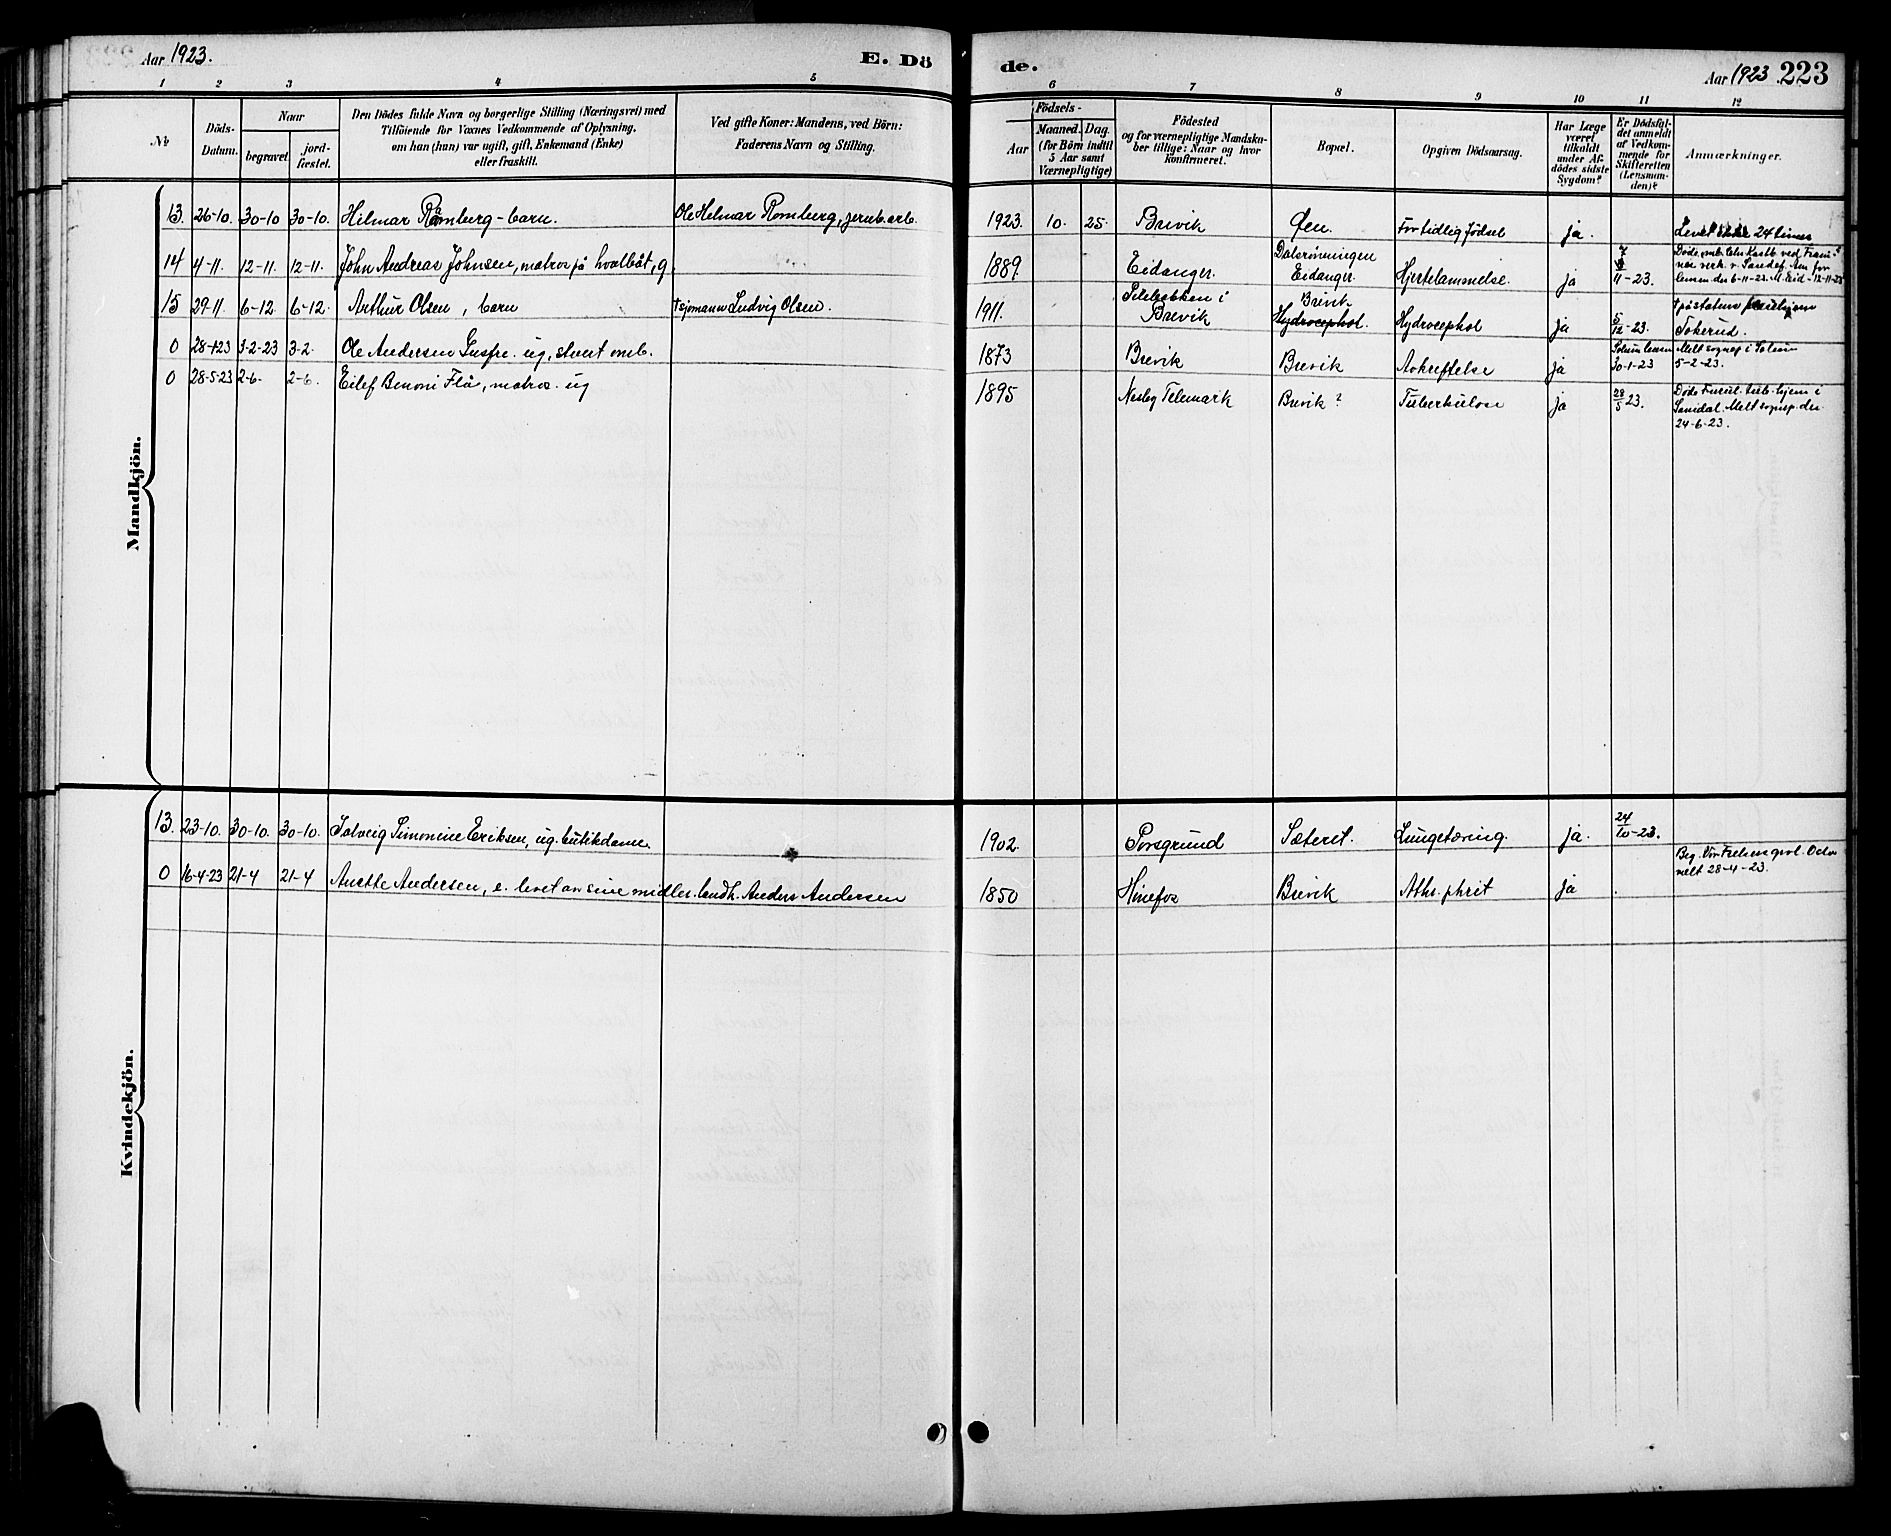 Aar 1923.
E. Dö
de.
Aar 1923. 223
1 2 3 4 5 6 7 8 9 10 11 12
№
Döds-
Datum.
Naar
begravet
jord-
fæstet.
Den Dödes fulde Navn og borgerlige Stilling (Næringsvei) med
Tilføiende for Voxnes Vedkommende af Oplysning,
om han (hun) var ugift, gift, Enkemand (Enke)
eller fraskilt.
Ved gifte Koner: Mandens, ved Börn:
Faderens Navn og Stilling.
Födsels-
Aar
Maaned. Dag.
(for Börn indtil
5 Aar samt
Værnepligtige)
Födested
og for værnepligtige Mandska-
ber tillige: Naar og hvor
konfirmeret.
Bopæl.
Opgiven Dödsaarsag.
Har Læge
været
tilkaldt
under Af-
dödes sidste
Sygdom?
Er Dödsfal-
det anmeldt
af Vedkom-
mende for
Skifteretten
(Lensman-
den)?
Anmærkninger.
Mandkjön.
13. 26-10. 30-10 30-10. Hilmar Romberg - barn. Ole Helmar Romberg, jernb.arb. 1923. 10. 25. Brevik Øen. For tidlig födsel ja. Levet 24 timer
14 4-11. 12-11. 12-11. John Andreas Johnsen, matros på hvalbåt, g. 1889. Eidanger. Dalsröningen Eidanger. Hjertelammelse. ja 7 11-23.
15 29-11. 6-12. 6-12. Arthur Olsen, barn † sjömann Ludvig Olsen. 1911. i Brevik Brevik Hydrocephal. Hydrocephal ja 5/12-23. † på statens pleiehjem Tokerud.
0 28-1-23 3-2-23 3-2. Ole Andersen ug, 1873 Brevik Brevik Avkreftelse ja 30-1-23 Melt sognep i Solum 5-2-23.
0 28-5-23 2-6. 2-6. Eilef Benoni Flå, matros. ug 1895 Telemark Brevik? Tuberkulose ja 28/5 23. Döde tub. hjem i Sanidal. Melt sognep. der 24-6-23.
Kvindekjön.
13. 23-10. 30-10. 30-10. Solveig Simonine Eriksen, ug. butikdame. 1902. Porsgrund Sæteret. Lungetæring. ja. 24/10-23.
0 16-4-23 21-4 21-4 Anette Andersen, e. levet av sine midler. landh. Anders Andersen 1850 Hönefos Brevik Athr. phrit ja Beg. Vor Frelsers grvl. Oslo melt 28-4-23.